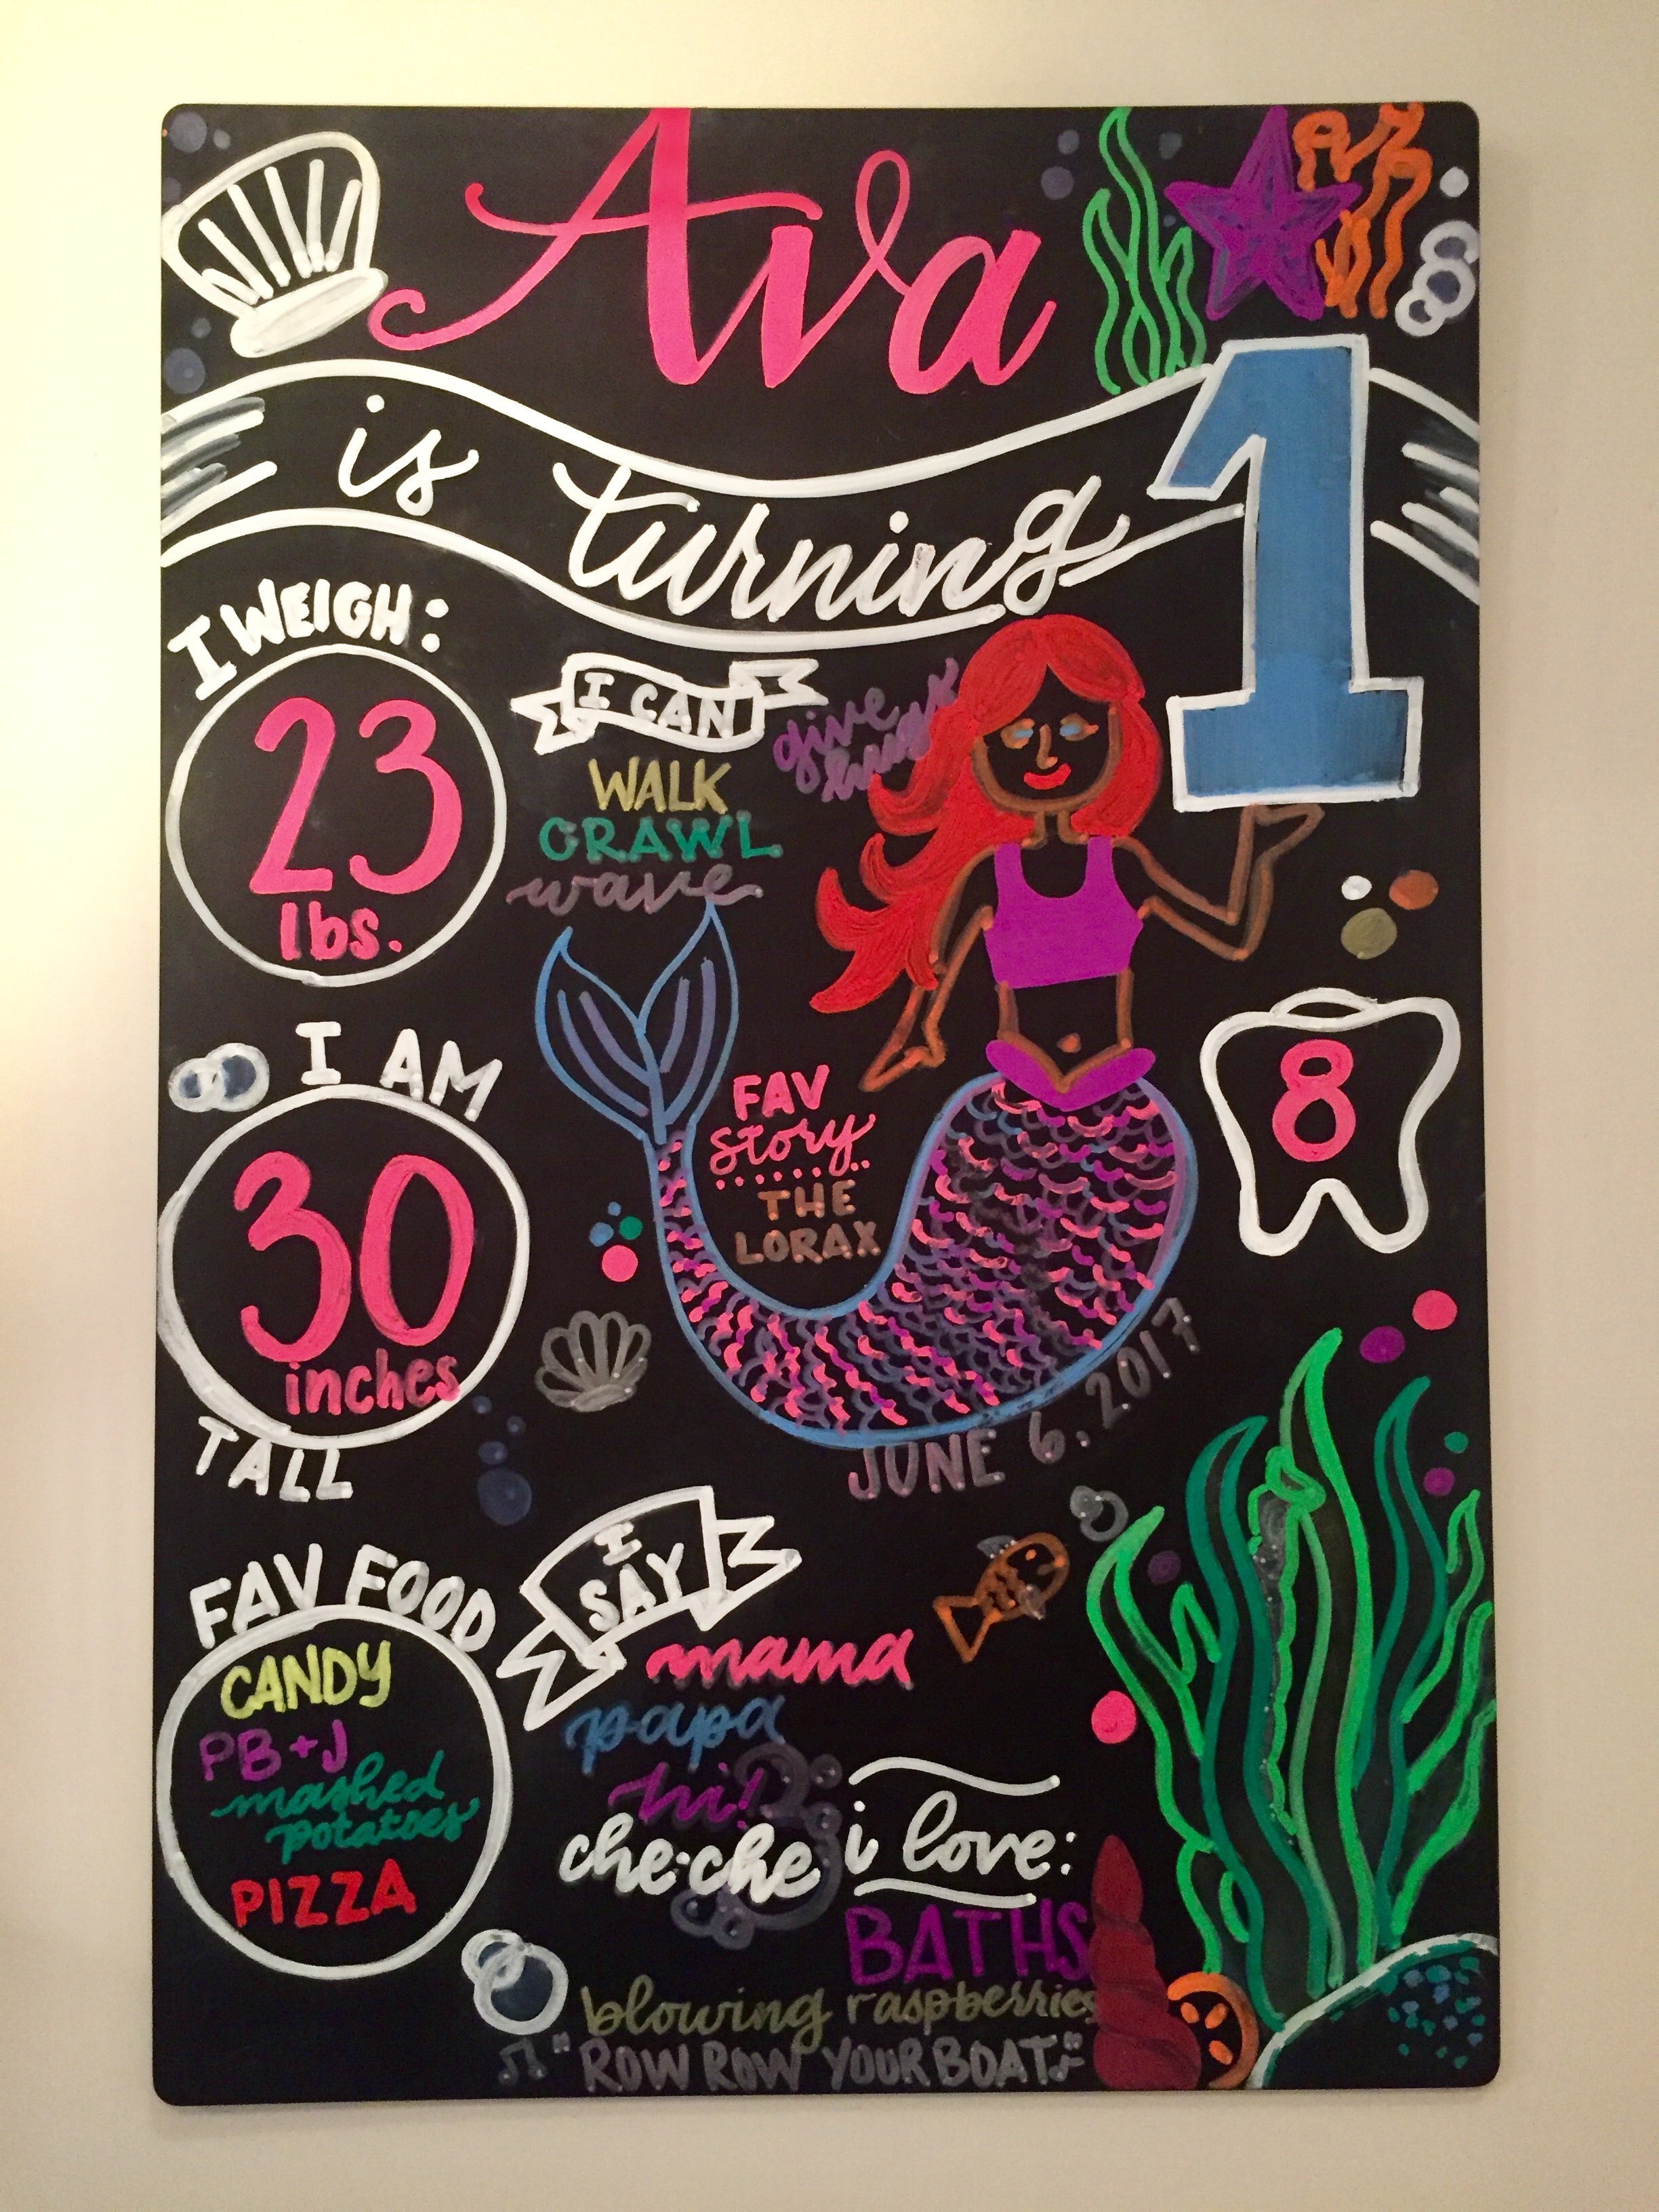 Ava
is turning
1
I WEIGH:
23
lbs.
I CAN
give
hugs
WALK
CRAWL
wave
I AM
30
inches
TALL
FAV
story
THE
LORAX
8
JUNE 6, 2017
FAV FOOD
CANDY
PB+J
mashed
potatoes
PIZZA
I
SAY
mama
papa
hi!
che-che
i love:
BATHS
blowing raspberries
"ROW ROW YOUR BOAT"